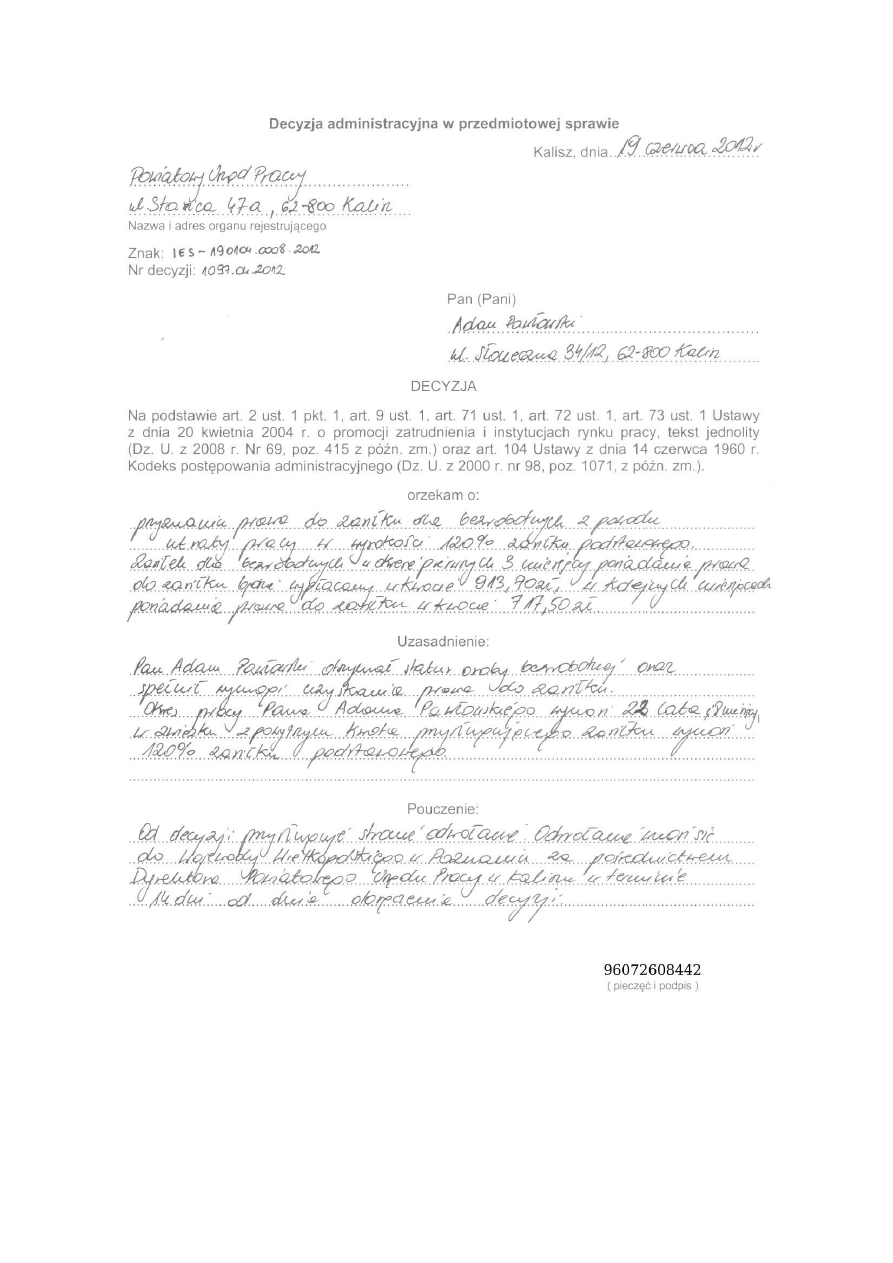 Decyzja administracyjna w przedmiotowej sprawie
Kalisz, dnia 19 czerwca 2012r
Powiatowy Urząd Pracy
ul. Stańca 47a, 62-800 Kalisz
Nazwa i adres organu rejestrującego
Znak: IES-190104.0008.2012
Nr decyzji: 1097.04.2012
Pan (Pani)
Adam Pawłowski
ul. Słoneczna 34/12, 62-800 Kalisz
DECYZJA
Na podstawie art. 2 ust. 1 pkt. 1, art. 9 ust. 1, art. 71 ust. 1, art. 72 ust. 1, art. 73 ust. 1 Ustawy
z dnia 20 kwietnia 2004 r. o promocji zatrudnienia i instytucjach rynku pracy, tekst jednolity
(Dz. U. z 2008 r. Nr 69, poz. 415 z późn. zm.) oraz art. 104 Ustawy z dnia 14 czerwca 1960 r.
Kodeks postępowania administracyjnego (Dz. U. z 2000 r. nr 98, poz. 1071, z późn. zm.).
orzekam o:
przyznaniu prawa do zasiłku dla bezrobotnych z powodu
utraty pracy w wysokości 120% zasiłku podstawowego.
Zasiłek dla bezrobotnych w okresie pierwszych 3 miesięcy posiadania prawa
do zasiłku będzie wypłacany w kwocie 913,90zł, w kolejnych miesiącach
posiadania prawa do zasiłku w kwocie 717,50 zł.
Uzasadnienie:
Pan Adam Pawłowski otrzymał status osoby bezrobotnej oraz
spełnił wymogi uzyskania prawa do zasiłku.
Okres pracy Pana Adama Pawłowskiego wynosi 22 lata i 8 miesięcy,
w związku z powyższym kwota przysługującego zasiłku wynosi
120% zasiłku podstawowego.
Pouczenie:
Od decyzji przysługuje stronie odwołanie. Odwołanie wnosi się
do Wojewody Wielkopolskiego w Poznaniu za pośrednictwem
Dyrektora Powiatowego Urzędu Pracy w Kaliszu w terminie
14 dni od dnia otrzymania decyzji.
96072608442
( pieczęć i podpis )